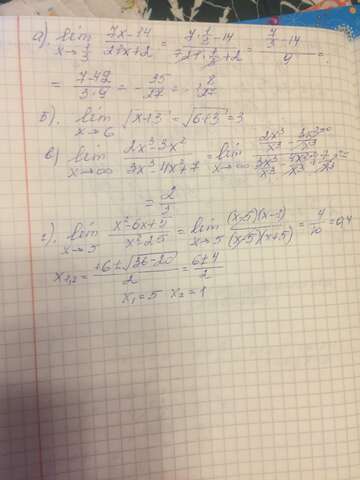 а). lim x→1/3 (7x-14)/(21x+2) = (7·1/3-14)/(21·1/3+2) = (7/3-14)/9 =
= (7-42)/(3·9) = -35/27 = -1 8/27
б). lim x→6 √(x+3) = √(6+3) = 3
в) lim x→∞ (2x³-3x²)/(3x³-4x²+7) = lim x→∞ (2x³/x³ - 3x²/x³)/(3x³/x³ - 4x²/x³ + 7/x³) =
= 2/3
г). lim x→5 (x²-6x+5)/(x²-25) = lim x→5 (x-5)(x-1)/(x-5)(x+5) = 4/10 = 0,4
x₁,₂ = (+6±√(36-20))/2 = (6±4)/2
x₁=5 x₂=1